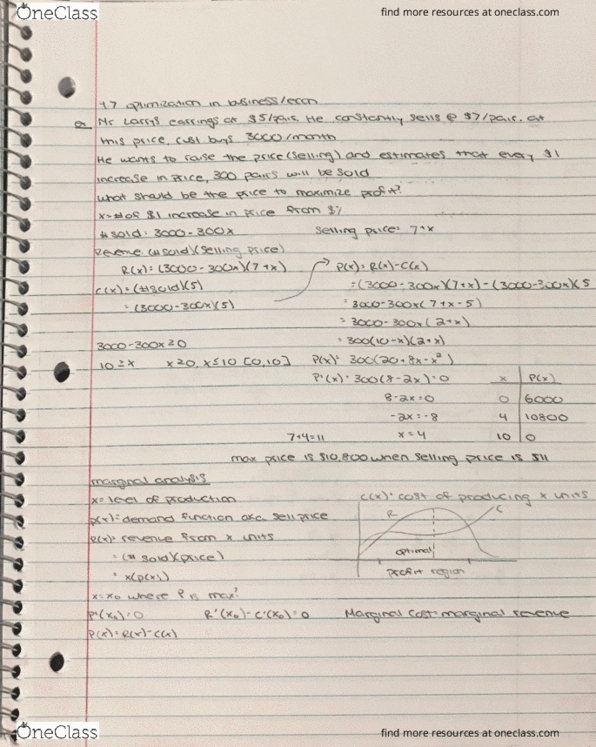 OneClass
find more resources at oneclass.com
4.7 optimization in business/econ
Mr Larrys earrings at $5/pair. He constantly sells @ $7/pair. at
this price, cust buys 3000/month
He wants to raise the price (selling) and estimates that every $1
increase in Price, 300 pairs will be sold
what should be the price to maximize profit?
x=# of $1 increase in price from $7
# sold: 3000-300x selling price: 7+x
Revenue (# sold)(selling price)
R(x)=(3000-300x)(7+x) P(x)=R(x)-C(x)
C(x)=(# sold)(5) =(3000-300x)(7+x)-(3000-300x)(5
=(3000-300x)(5) =3000-300x(7+x-5)
=3000-300x(2+x)
3000-300x≥0 =300(10-x)(2+x)
10≥x x≥0, x≤10 [0,10] P(x)=300(20+8x-x²)
P'(x)=300(8-2x)=0 x P(x)
8-2x=0 0 6000
-2x=-8 4 10800
7+4=11 x=4 10 0
max price is $10,800 when selling price is $11
marginal analysis
x=level of production C(x)=cost of producing x units
p(x)=demand function aka sell price R C
R(x)=revenue from x units
=(# sold)(price) optimal
=x(p(x)) profit region
x=x₀ where P is max!
P'(x₀)=0 R'(x₀)-C'(x₀)=0 Marginal cost=marginal revenue
P(x)=R(x)-C(x)
OneClass
find more resources at oneclass.com